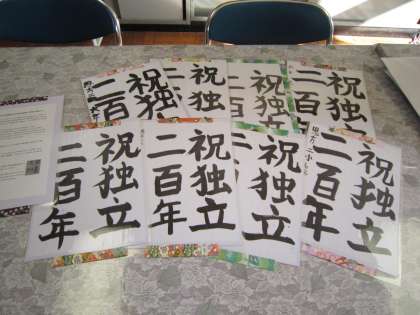 祝独立
二百年
祝独
二百年
祝独立
二百年
祝独立
二百年
祝独立
二百年
祝独立
二百年
祝独立
二百年
祝独立
二百年